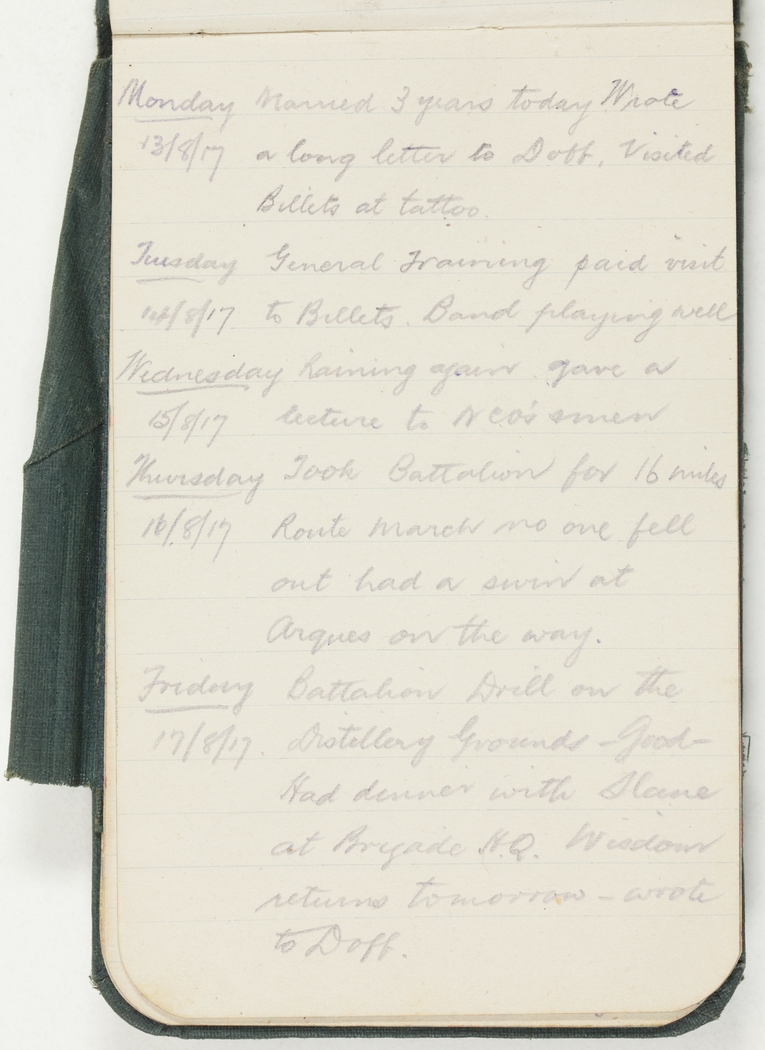 Monday Married 3 years today Wrote
13/8/17 a long letter to Doff. Visited
Billets at tattoo.
Tuesday General Training paid visit
14/8/17 to Billets. Band playing well
Wednesday Raining again. gave a
15/8/17 lecture to NCO's & men
Thursday Took Battalion for 16 miles
16/8/17 Route March no one fell
out had a swim at
Arques on the way.
Friday Battalion Drill on the
17/8/17. Distillery Grounds - Good -
Had dinner with Slane
at Brigade H.Q. Wisdom
returns tomorrow - wrote
to Doff.